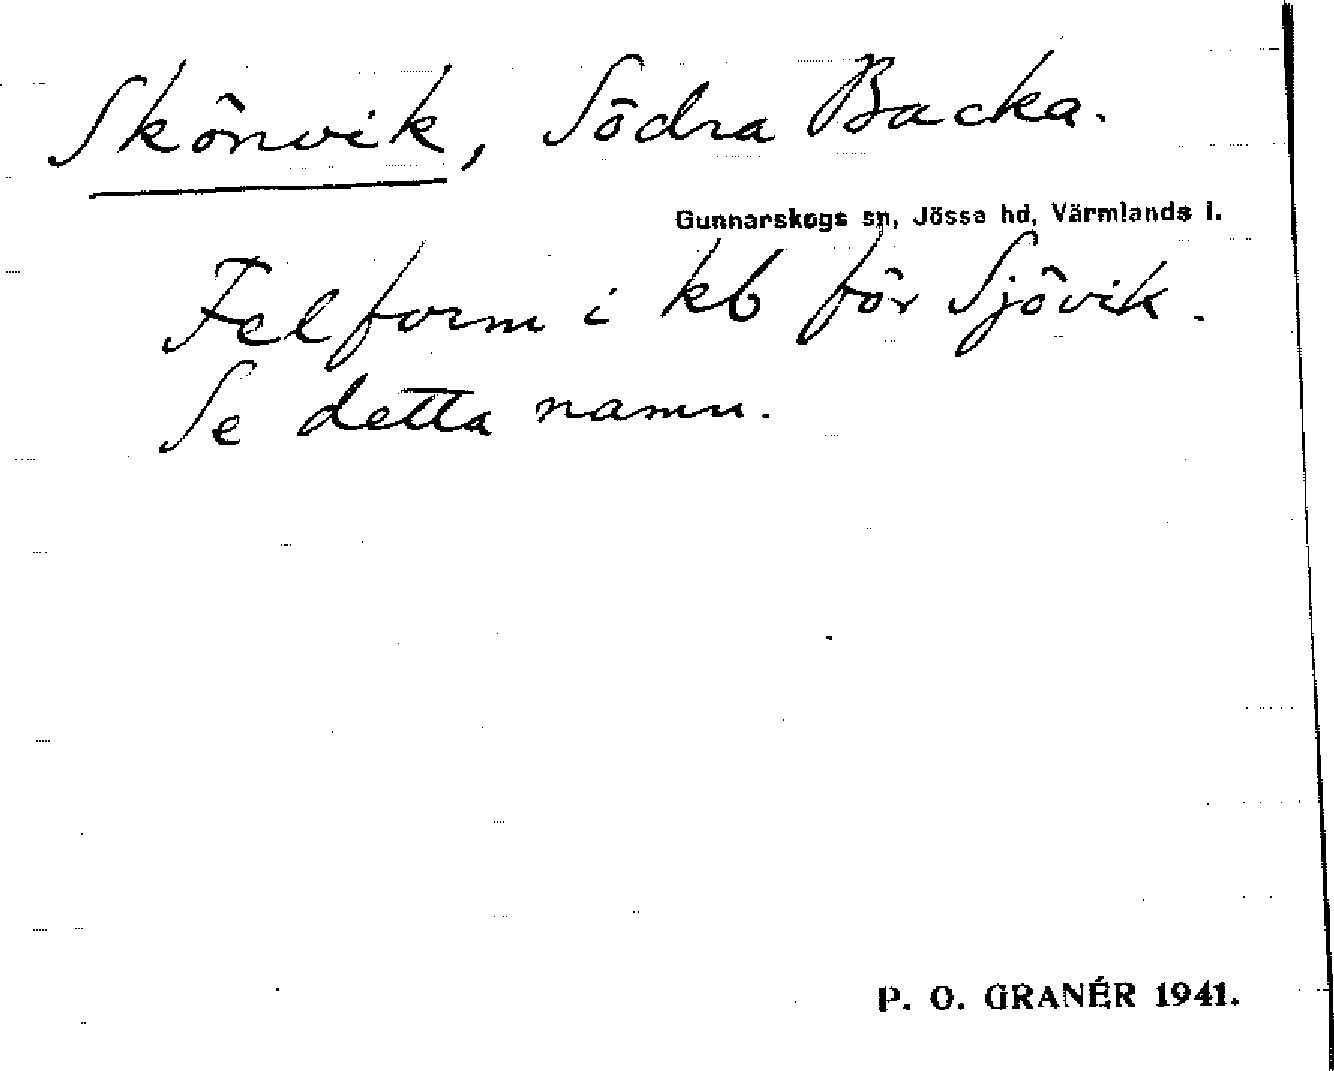 Skönvik, Södra Backa.
Gunnarskogs sn, Jösse hd, Värmlands l.
Felform i kb för Sjövik.
Se detta namn.
P. O. GRANÉR 1941.